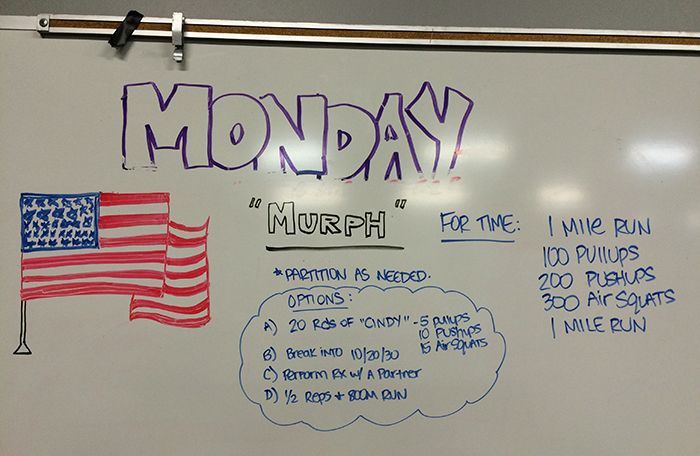 MONDAY
"MURPH"
FOR TIME:
1 MILE RUN
100 PULLUPS
200 PUSHUPS
300 AIR SQUATS
1 MILE RUN
*PARTITION AS NEEDED.
OPTIONS:
A) 20 Rds OF "CINDY" - 5 PULLUPS
10 PUSHUPS
15 AIR SQUATS
B) Break INTO 10/20/30
C) Perform RX w/ A Partner
D) 1/2 Reps + 800M RUN